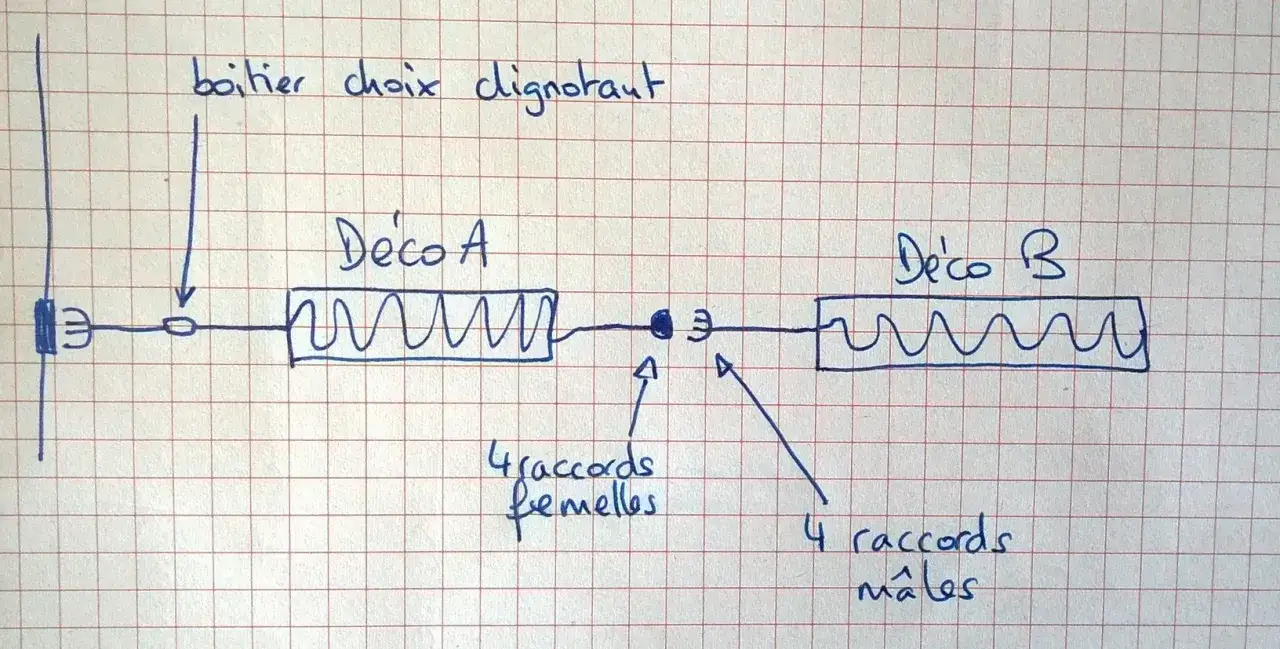 boitier choix clignotant
Déco A
Déco B
4 raccords
femelles
4 raccords
mâles